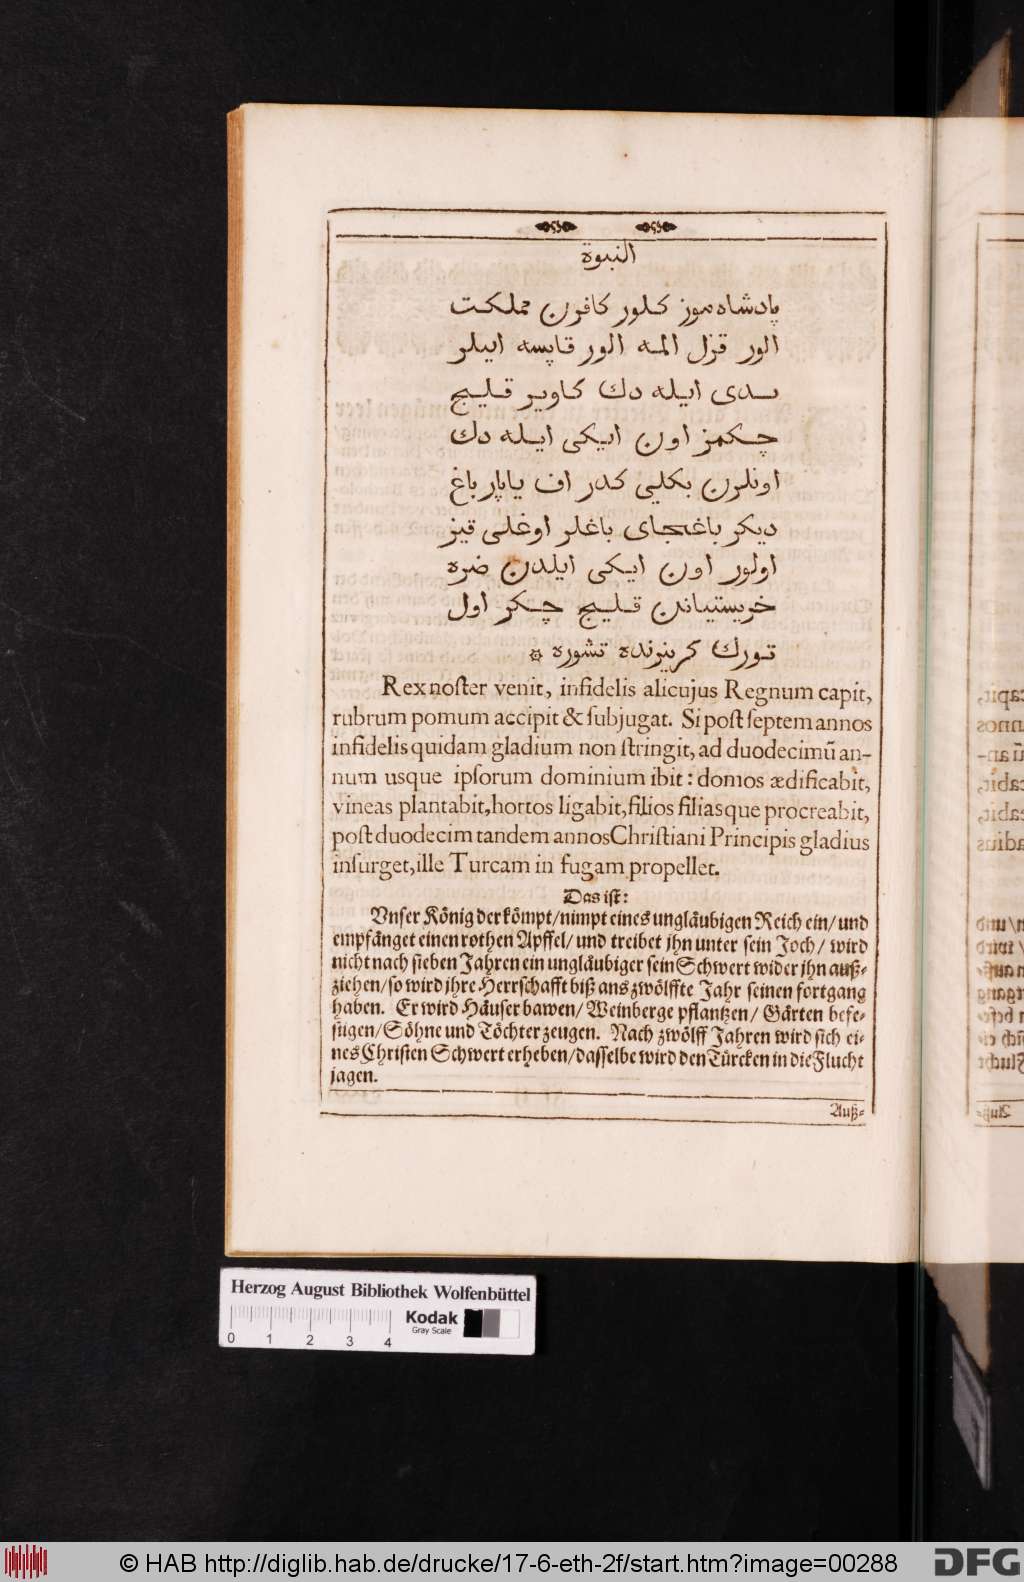 النبوة
پادشاه موز كلور كافرن مملكت
الور قزل المه الور قاپسه اييلر
يدى ايله دك كاوير قليج
چكمز اون ايكى ايله دك
اونلرن بكليى كدر اف ياپار باغ
ديكر باغجاى باغلر اوغلى قيز
اولور اون ايكى ايلدن ضره
خريستياندن قليج چكر اول
تورك كرينرنده تشوره ۞
Rex noſter venit, infidelis alicujus Regnum capit,
rubrum pomum accipit & ſubjugat. Si poſt ſeptem annos
infidelis quidam gladium non ſtringit, ad duodecimũ an-
num usque ipſorum dominium ibit: domos ædificabit,
vineas plantabit, hortos ligabit, filios filiasque procreabit,
poſt duodecim tandem annos Chriſtiani Principis gladius
inſurget, ille Turcam in fugam propellet.
Das iſt:
Vnſer König der kömpt/ nimpt eines ungläubigen Reich ein/ und
empfänget einen rothen Apffel/ und treibet jhn unter ſein Joch/ wird
nicht nach ſieben Jahren ein ungläubiger ſein Schwert wider jhn auß-
ziehen/ ſo wird jhre Herrſchafft biß ans zwölffte Jahr ſeinen fortgang
haben. Er wird Häuſer bawen/ Weinberge pflantzen/ Gärten befe-
ſtigen/ Söhne und Töchter zeugen. Nach zwölff Jahren wird ſich ei-
nes Chriſten Schwert erheben/ daſſelbe wird den Türcken in die Flucht
jagen.
Auß-
Herzog August Bibliothek Wolfenbüttel
Kodak
Gray Scale
0 1 2 3 4
© HAB http://diglib.hab.de/drucke/17-6-eth-2f/start.htm?image=00288
DFG